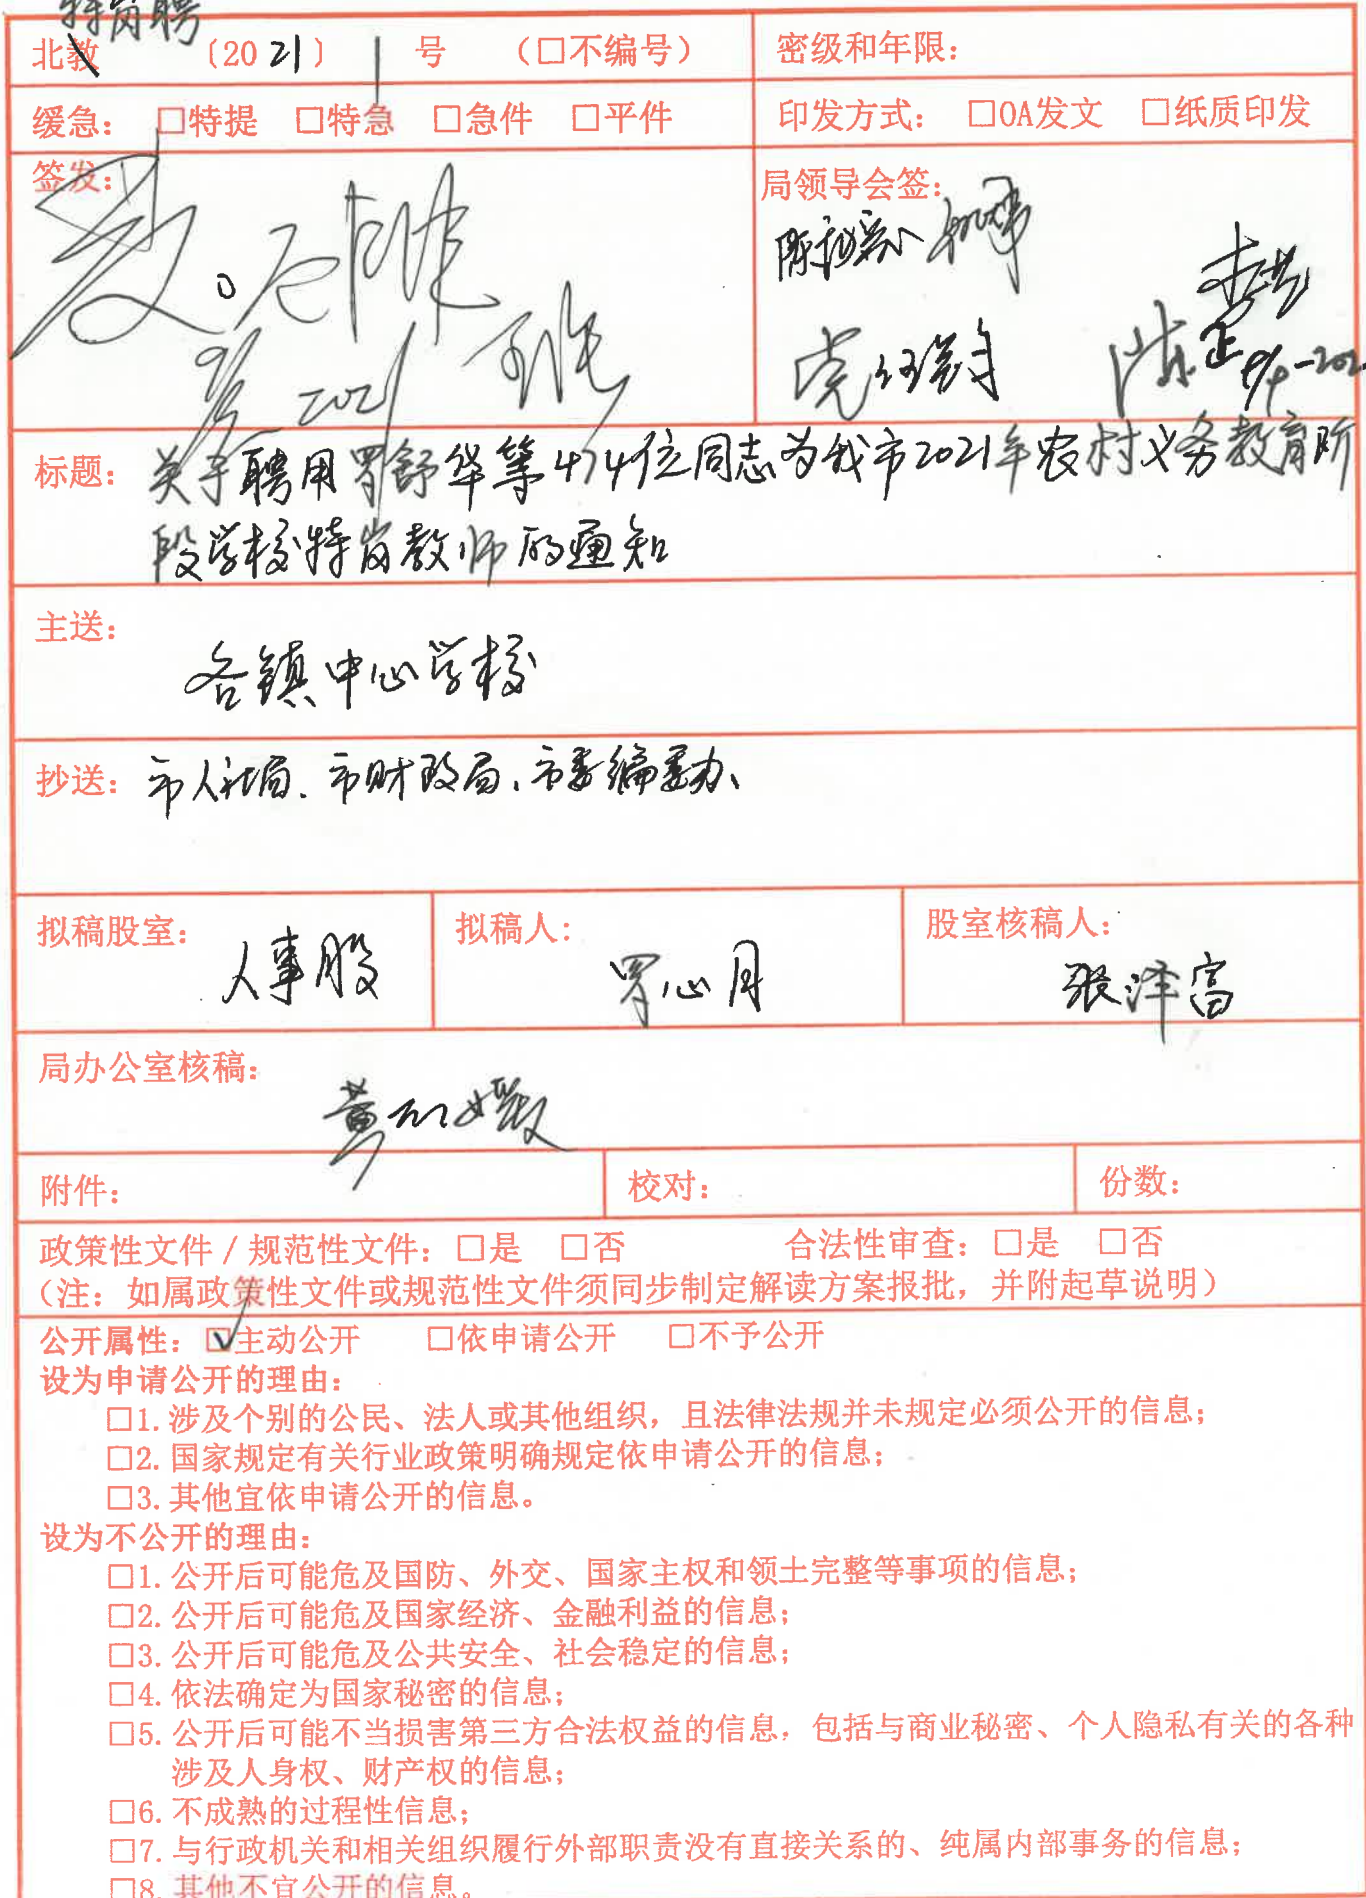 特岗聘
北教 〔2021〕 1 号 （□不编号） 密级和年限：
缓急： □特提 □特急 □急件 □平件 印发方式： □OA发文 □纸质印发
签发： 局领导会签：
2021
标题： 关于聘用罗舒华等474位同志为我市2021年农村义务教育阶
段学校特岗教师的通知
主送：
各镇中心学校
抄送： 市人社局、市财政局、市委编委办、
拟稿股室： 人事股 拟稿人： 罗心月 股室核稿人： 张泽富
局办公室核稿：
附件： 校对： 份数：
政策性文件/规范性文件：□是 □否 合法性审查：□是 □否
（注：如属政策性文件或规范性文件须同步制定解读方案报批，并附起草说明）
公开属性：☑主动公开 □依申请公开 □不予公开
设为申请公开的理由：
□1. 涉及个别的公民、法人或其他组织，且法律法规并未规定必须公开的信息；
□2. 国家规定有关行业政策明确规定依申请公开的信息；
□3. 其他宜依申请公开的信息。
设为不公开的理由：
□1. 公开后可能危及国防、外交、国家主权和领土完整等事项的信息；
□2. 公开后可能危及国家经济、金融利益的信息；
□3. 公开后可能危及公共安全、社会稳定的信息；
□4. 依法确定为国家秘密的信息；
□5. 公开后可能不当损害第三方合法权益的信息，包括与商业秘密、个人隐私有关的各种
涉及人身权、财产权的信息；
□6. 不成熟的过程性信息；
□7. 与行政机关和相关组织履行外部职责没有直接关系的、纯属内部事务的信息；
□8. 其他不宜公开的信息。